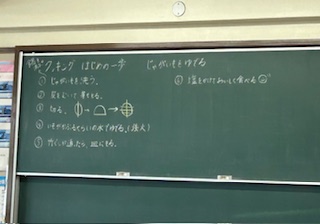 クッキング はじめの一歩
じゃがいもをゆでる
① じゃがいもを洗う。
② 皮をむいて芽をとる。
③ 切る。
④ いもがかぶるくらいの水でゆでる。(強火)
⑤ 竹ぐしが通ったら、皿にもる。
⑥ 塩をかけておいしく食べる